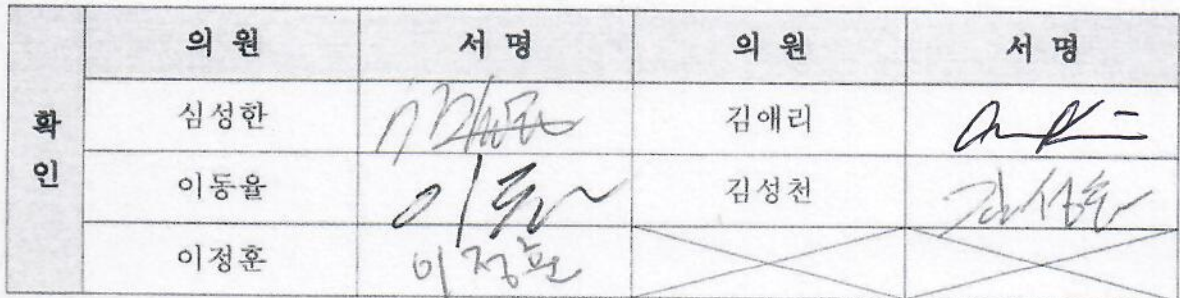 의 원 서 명 의 원 서 명
확
인
심성한 김애리
이동율 이동율 김성천 김성천
이정훈 이정훈